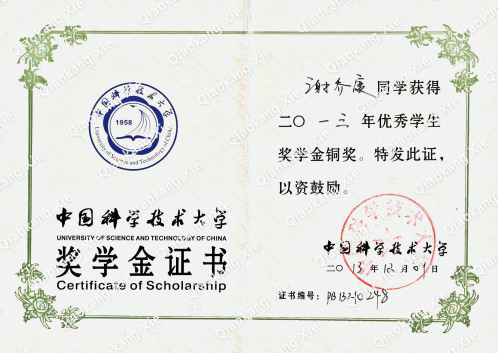 中国科学技术大学
1958
University of Science and Technology of China
中国科学技术大学
UNIVERSITY OF SCIENCE AND TECHNOLOGY OF CHINA
奖学金证书
Certificate of Scholarship
谢乔康 同学获得
二〇一三 年优秀学生
奖学金铜奖。特发此证,
以资鼓励。
中国科学技术大学
二〇13年12月01日
证书编号:PB13210248
Qiaokang Xie